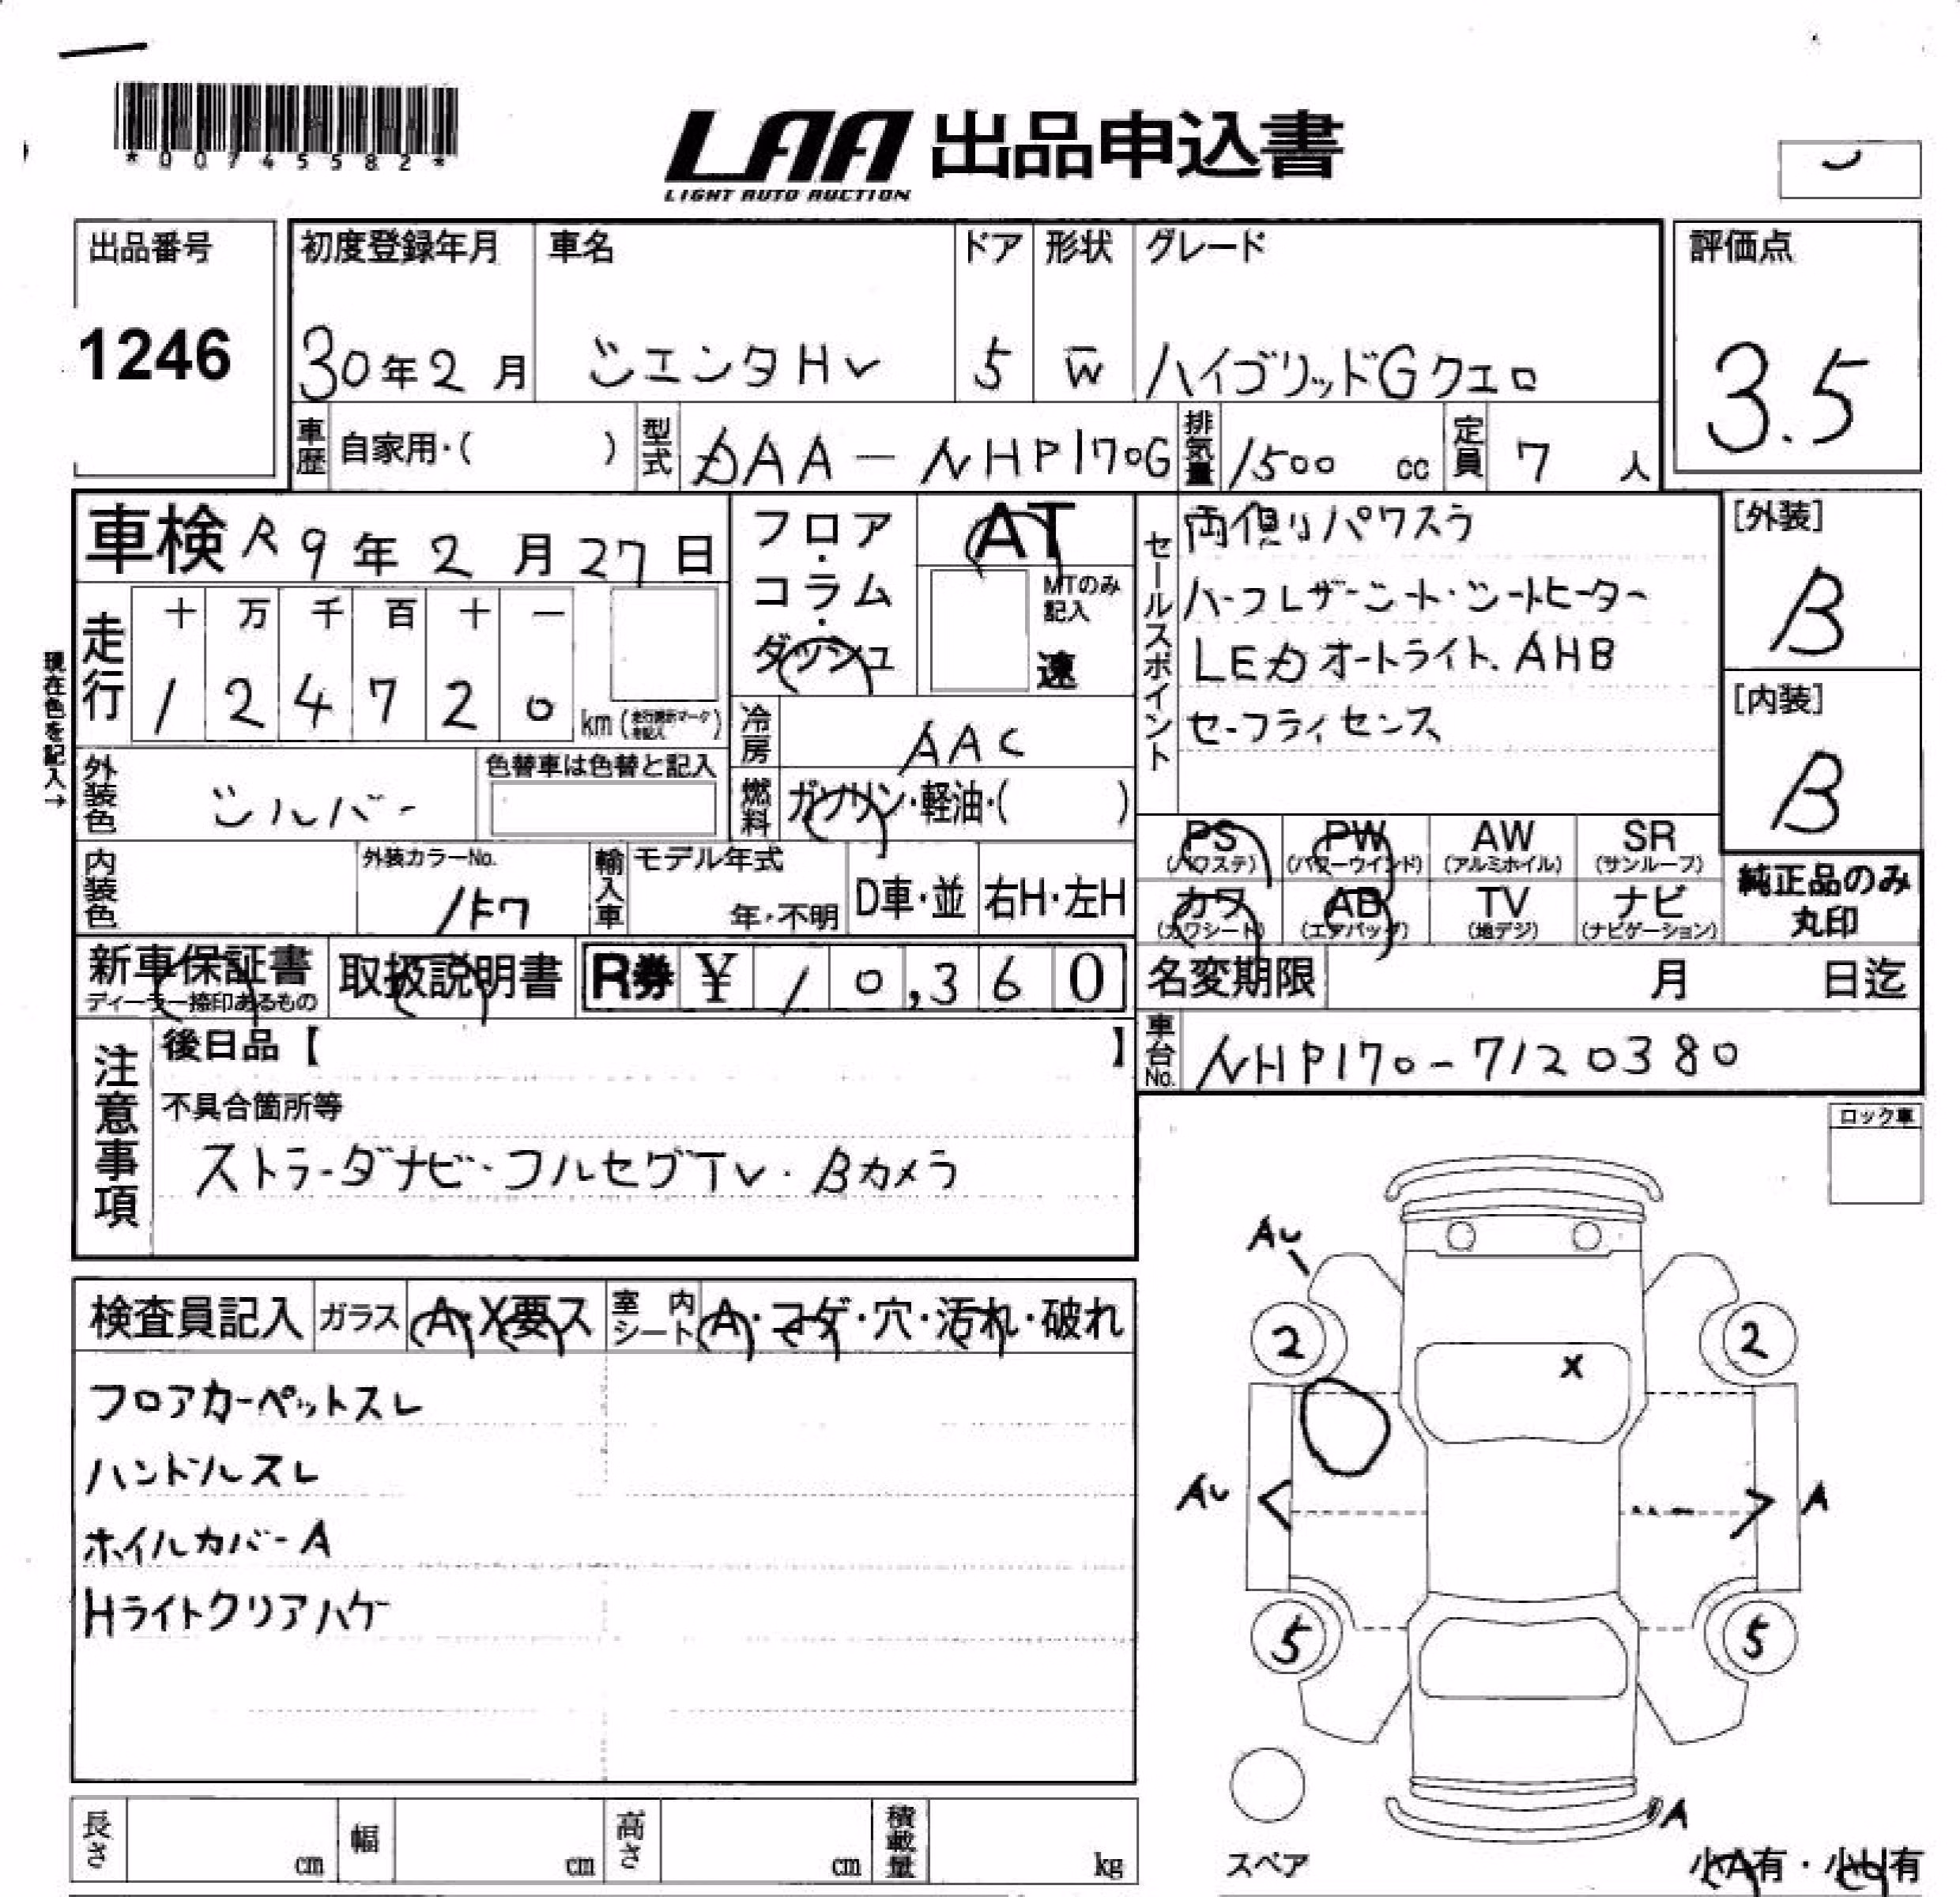 *00745582*
LAA 出品申込書
LIGHT AUTO AUCTION
出品番号
1246
初度登録年月
30年2月
車名
シエンタHV
ドア
5
形状
W
グレード
ハイブリッドGクエロ
評価点
3.5
車歴
自家用・( )
型式
DAA-NHP170G
排気量
1500 cc
定員
7 人
車検 R9年2月27日
フロア・コラム・ダッシュ
AT
MTのみ記入
速
セールスポイント
両側パワスラ
ハーフレザーシート・シートヒーター
LEDオートライト、AHB
セーフティセンス
[外装]
B
[内装]
B
現在色を記入→
走行
十 万 千 百 十 一
1 2 4 7 2 0 km
冷房
AAC
外装色
シルバー
色替車は色替と記入
燃料
ガソリン・軽油・( )
PS (パワステ)
PW (パワーウインド)
AW (アルミホイル)
SR (サンルーフ)
カワ (カワシート)
AB (エアバッグ)
TV (地デジ)
ナビ (ナビゲーション)
純正品のみ丸印
内装色
外装カラーNo.
1F7
輸入車
モデル年式
年・不明
D車・並
右H・左H
新車保証書
ディーラー捺印あるもの
取扱説明書
R券 ¥10,360
名変期限
月 日迄
車台No.
NHP170-7120380
注意事項
後日品【 】
不具合箇所等
ストラーダナビ・フルセグTV・Bカメラ
ロック車
検査員記入
ガラス
A・X要ス
室内シート
A・コゲ・穴・汚れ・破れ
フロアカーペットスレ
ハンドルスレ
ホイルカバーA
Hライトクリアハゲ
AU
2
2
X
AU
A
5
5
A
スペア
小A有・小U有
長さ cm
幅 cm
高さ cm
積載量 kg